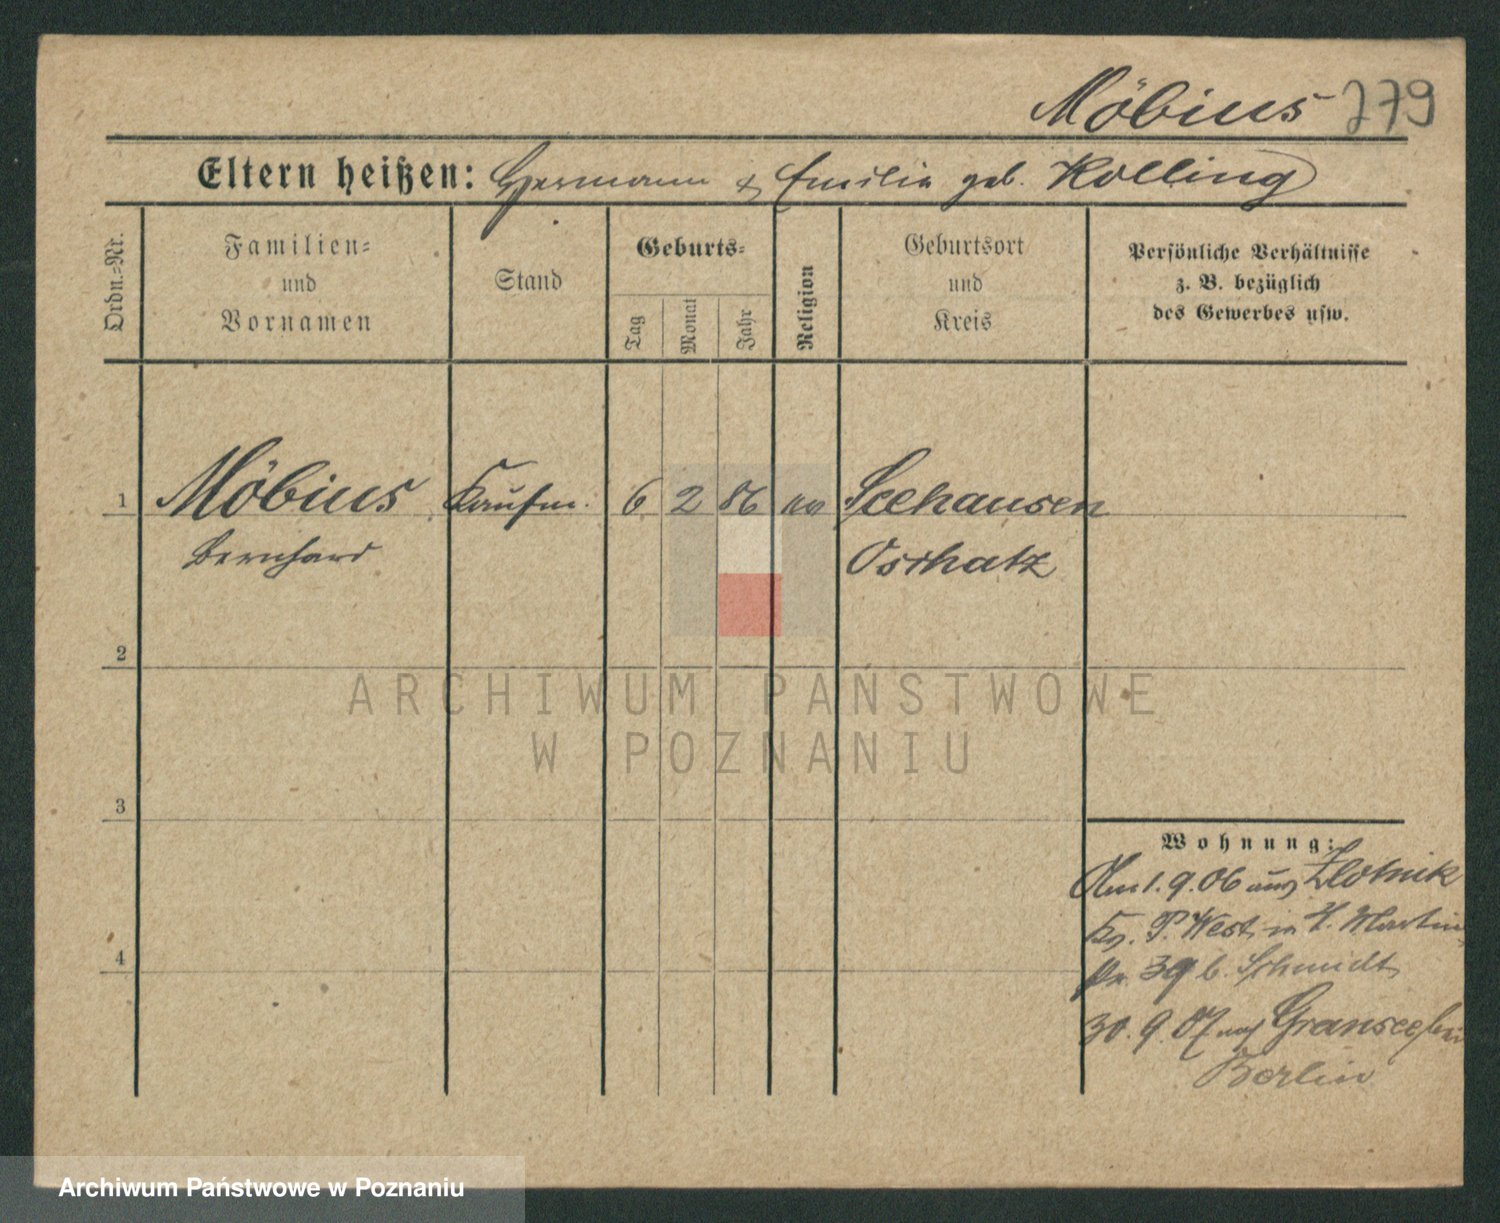 Möbius 279
Eltern heißen: Hermann & Emilie geb. Kolling
Ordn.-Nr.
Familien- und Vornamen
Stand
Geburts-
Tag
Monat
Jahr
Religion
Geburtsort und Kreis
Persönliche Verhältnisse z. B. bezüglich des Gewerbes usw.
1 Möbius Kaufm. 6 2 86 ev Seehausen
Bernhard Oschatz
2
3
4
ARCHIWUM PAŃSTWOWE
W POZNANIU
Wohnung:
Am 1.9.06 aus Zlotnik
Kr. P. West in St. Martin
39 b. Schmidt
30.9.07 nach Gransee bei
Berlin
Archiwum Państwowe w Poznaniu